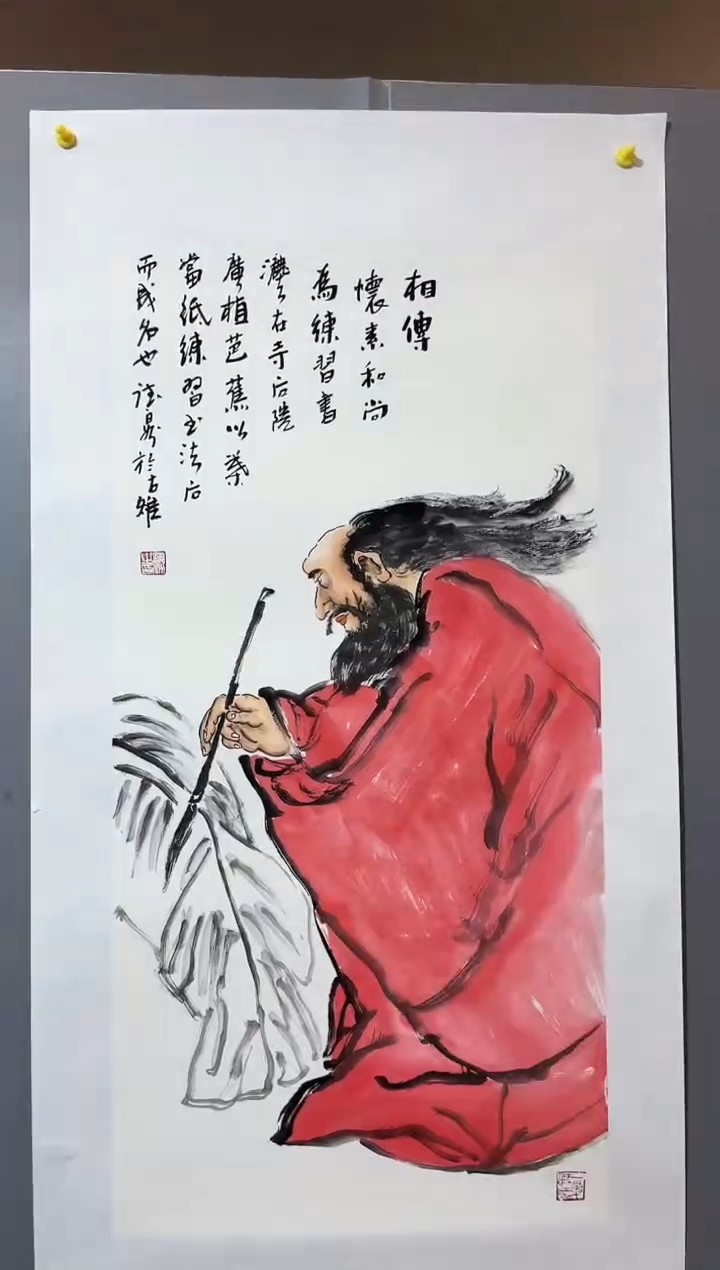 相傳
懷素和尚
為練習書
灋在寺后院
廣植芭蕉以葉
當紙練習书法后
而成名也 於古雉